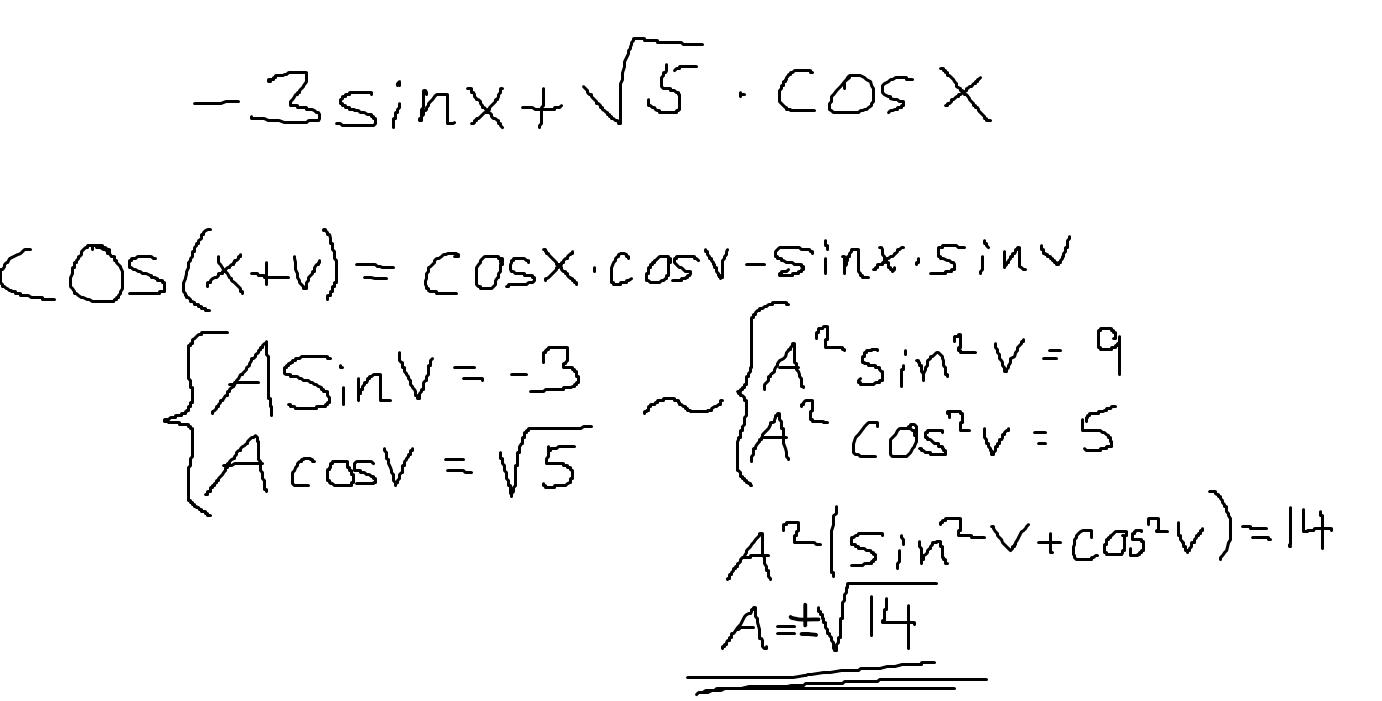 -3sinx+√5 · cosx
cos(x+v)=cosx·cosv-sinx·sinv
{ASinV=-3 ~ {A²sin²v=9
{AcosV=√5 {A²cos²v=5
A²(sin²v+cos²v)=14
A=±√14